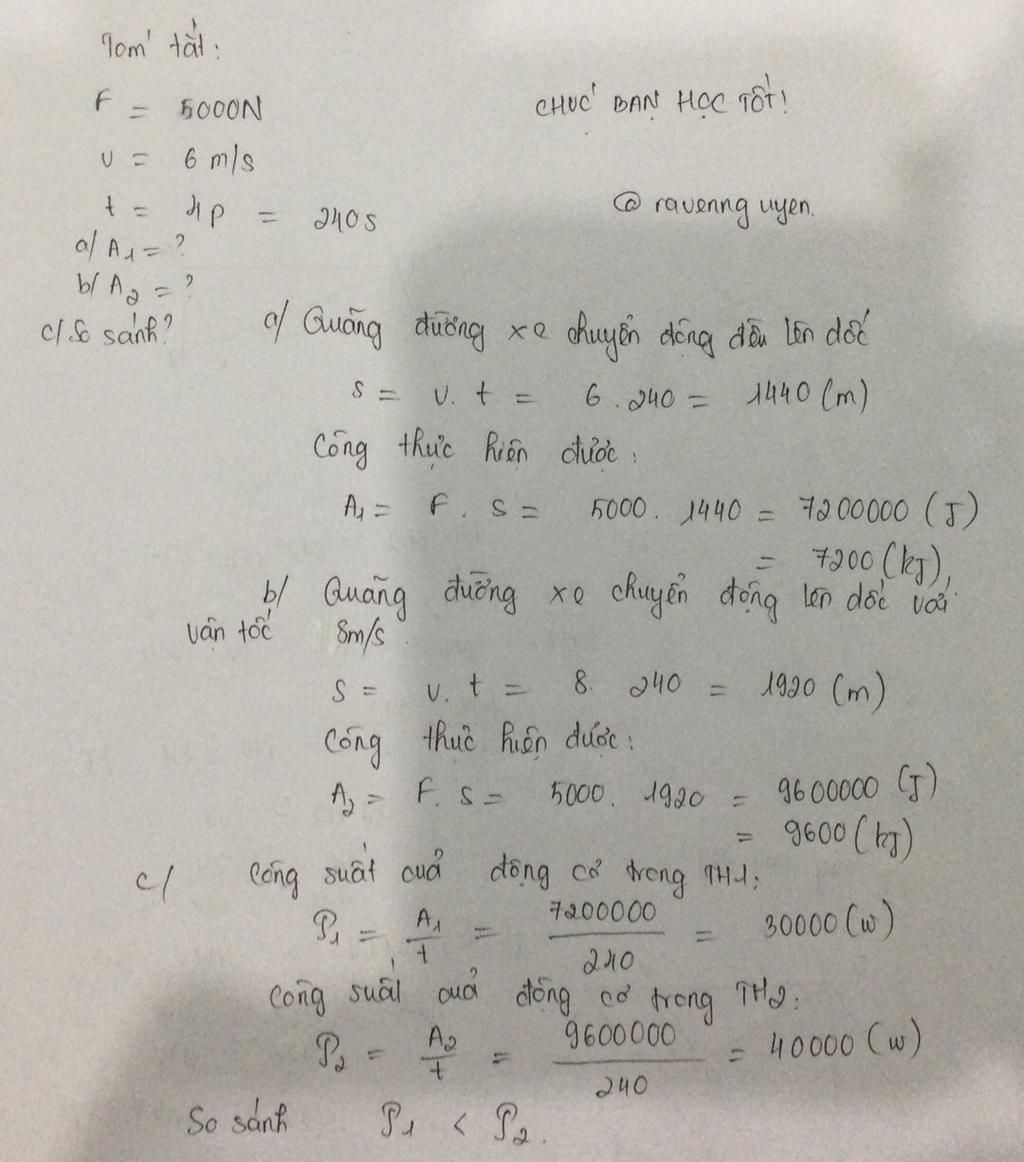 Tóm tắt:
F = 5000N
CHÚC BẠN HỌC TỐT!
v = 6 m/s
t = 4p = 240s
@ ravennguyen.
a/ A1 = ?
b/ A2 = ?
c/ So sánh?
a/ Quãng đường xe chuyển động đều lên dốc
s = v. t = 6 . 240 = 1440 (m)
Công thực hiện được:
A1 = F . s = 5000. 1440 = 7200000 (J)
= 7200 (kJ),
b/ Quãng đường xe chuyển động lên dốc với
vận tốc 8m/s
s = v. t = 8. 240 = 1920 (m)
Công thực hiện được:
A2 = F. s = 5000. 1920 = 9600000 (J)
= 9600 (kJ)
c/ Công suất của động cơ trong TH1:
P1 = A1/t = 7200000/240 = 30000 (w)
Công suất của động cơ trong TH2:
P2 = A2/t = 9600000/240 = 40000 (w)
So sánh P1 < P2.